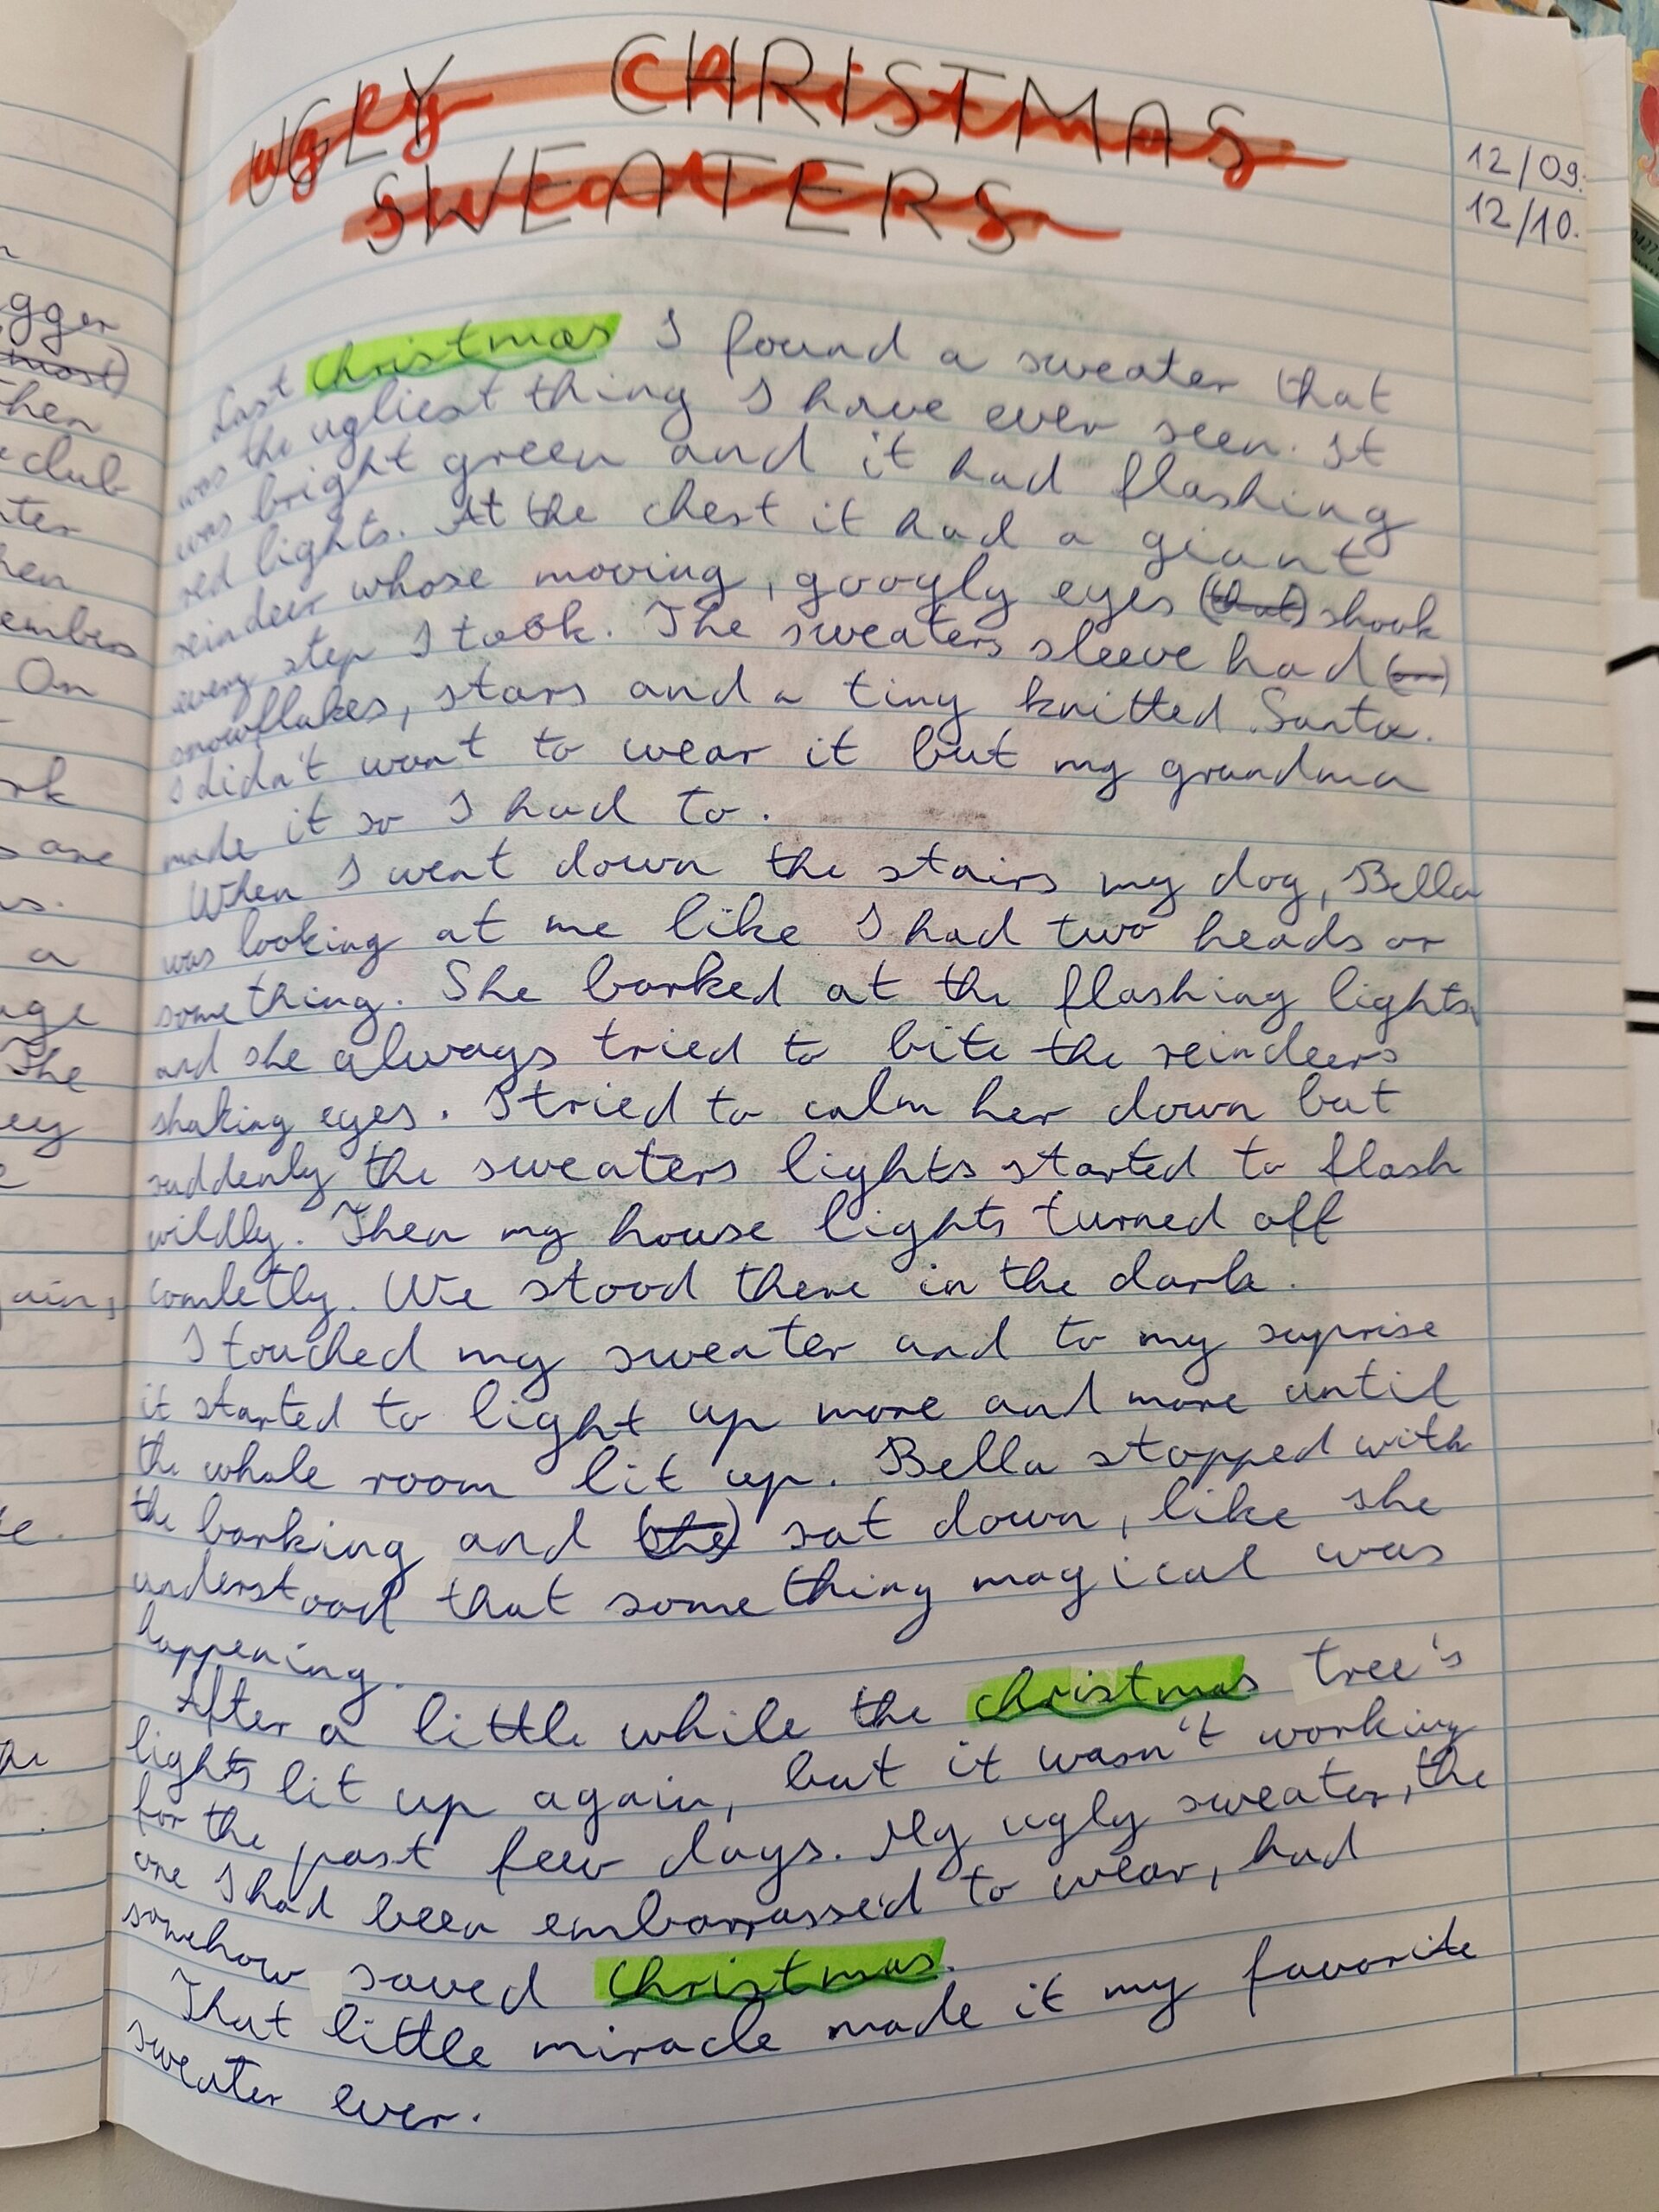 UGLY CHRISTMAS
ugly Christmas
SWEATERS
sweaters
12/09.
12/10.
Last christmas I found a sweater that
was the ugliest thing I have ever seen. It
was bright green and it had flashing
red lights. At the chest it had a giant
reindeer whose moving, googly eyes (that) shook
every step I took. The sweaters sleeve had (on)
snowflakes, stars and a tiny knitted Santa.
I didn't want to wear it but my grandma
made it so I had to.
When I went down the stairs my dog, Bella
was looking at me like I had two heads or
something. She barked at the flashing lights,
and she always tried to bite the reindeers
shaking eyes. I tried to calm her down but
suddenly the sweaters lights started to flash
wildly. Then my house lights turned off
comletly. We stood there in the dark.
I touched my sweater and to my suprise
it started to light up more and more until
the whole room lit up. Bella stopped with
the barking and (she) sat down, like she
understood that something magical was
happening.
After a little while the christmas tree's
lights lit up again, but it wasn't working
for the past few days. My ugly sweater, the
one I had been embarrassed to wear, had
somehow saved christmas.
That little miracle made it my favorite
sweater ever.
gger
(most)
then
club
hen
On
are
a
The